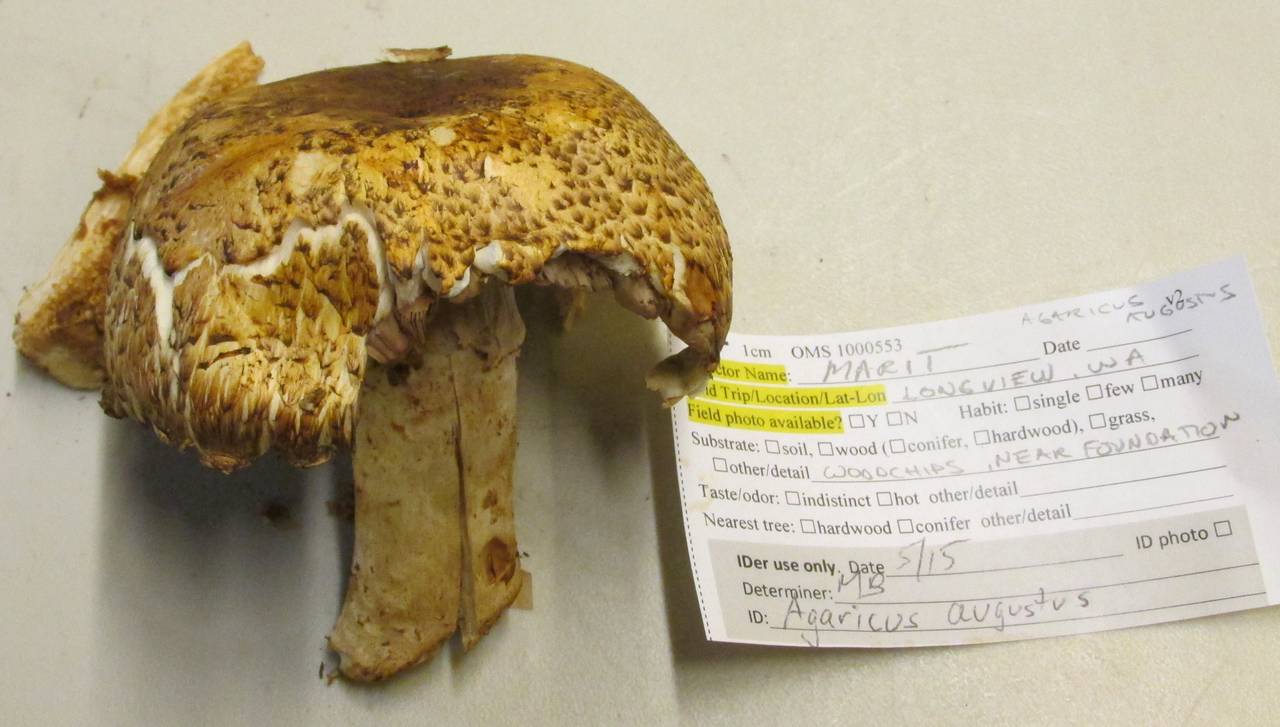 AGARICUS
AUGUSTUS
1cm OMS 1000553
ctor Name: MARIT Date
d Trip/Location/Lat-Lon LONGVIEW, WA
Field photo available? ☐Y ☐N Habit: ☐single ☐few ☐many
Substrate: ☐soil, ☐wood (☐conifer, ☐hardwood), ☐grass,
☐other/detail WOODCHIPS, NEAR FOUNDATION
Taste/odor: ☐indistinct ☐hot other/detail
Nearest tree: ☐hardwood ☐conifer other/detail
IDer use only. Date 5/15 ID photo ☐
Determiner: MB
ID: Agaricus augustus